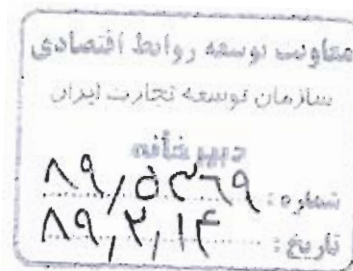 معاونت توسعه روابط اقتصادی
سازمان توسعه تجارت ایران
دبیرخانه
شماره: ۸۹/۵۳۶۹
تاریخ: ۸۹,۳,۱۴